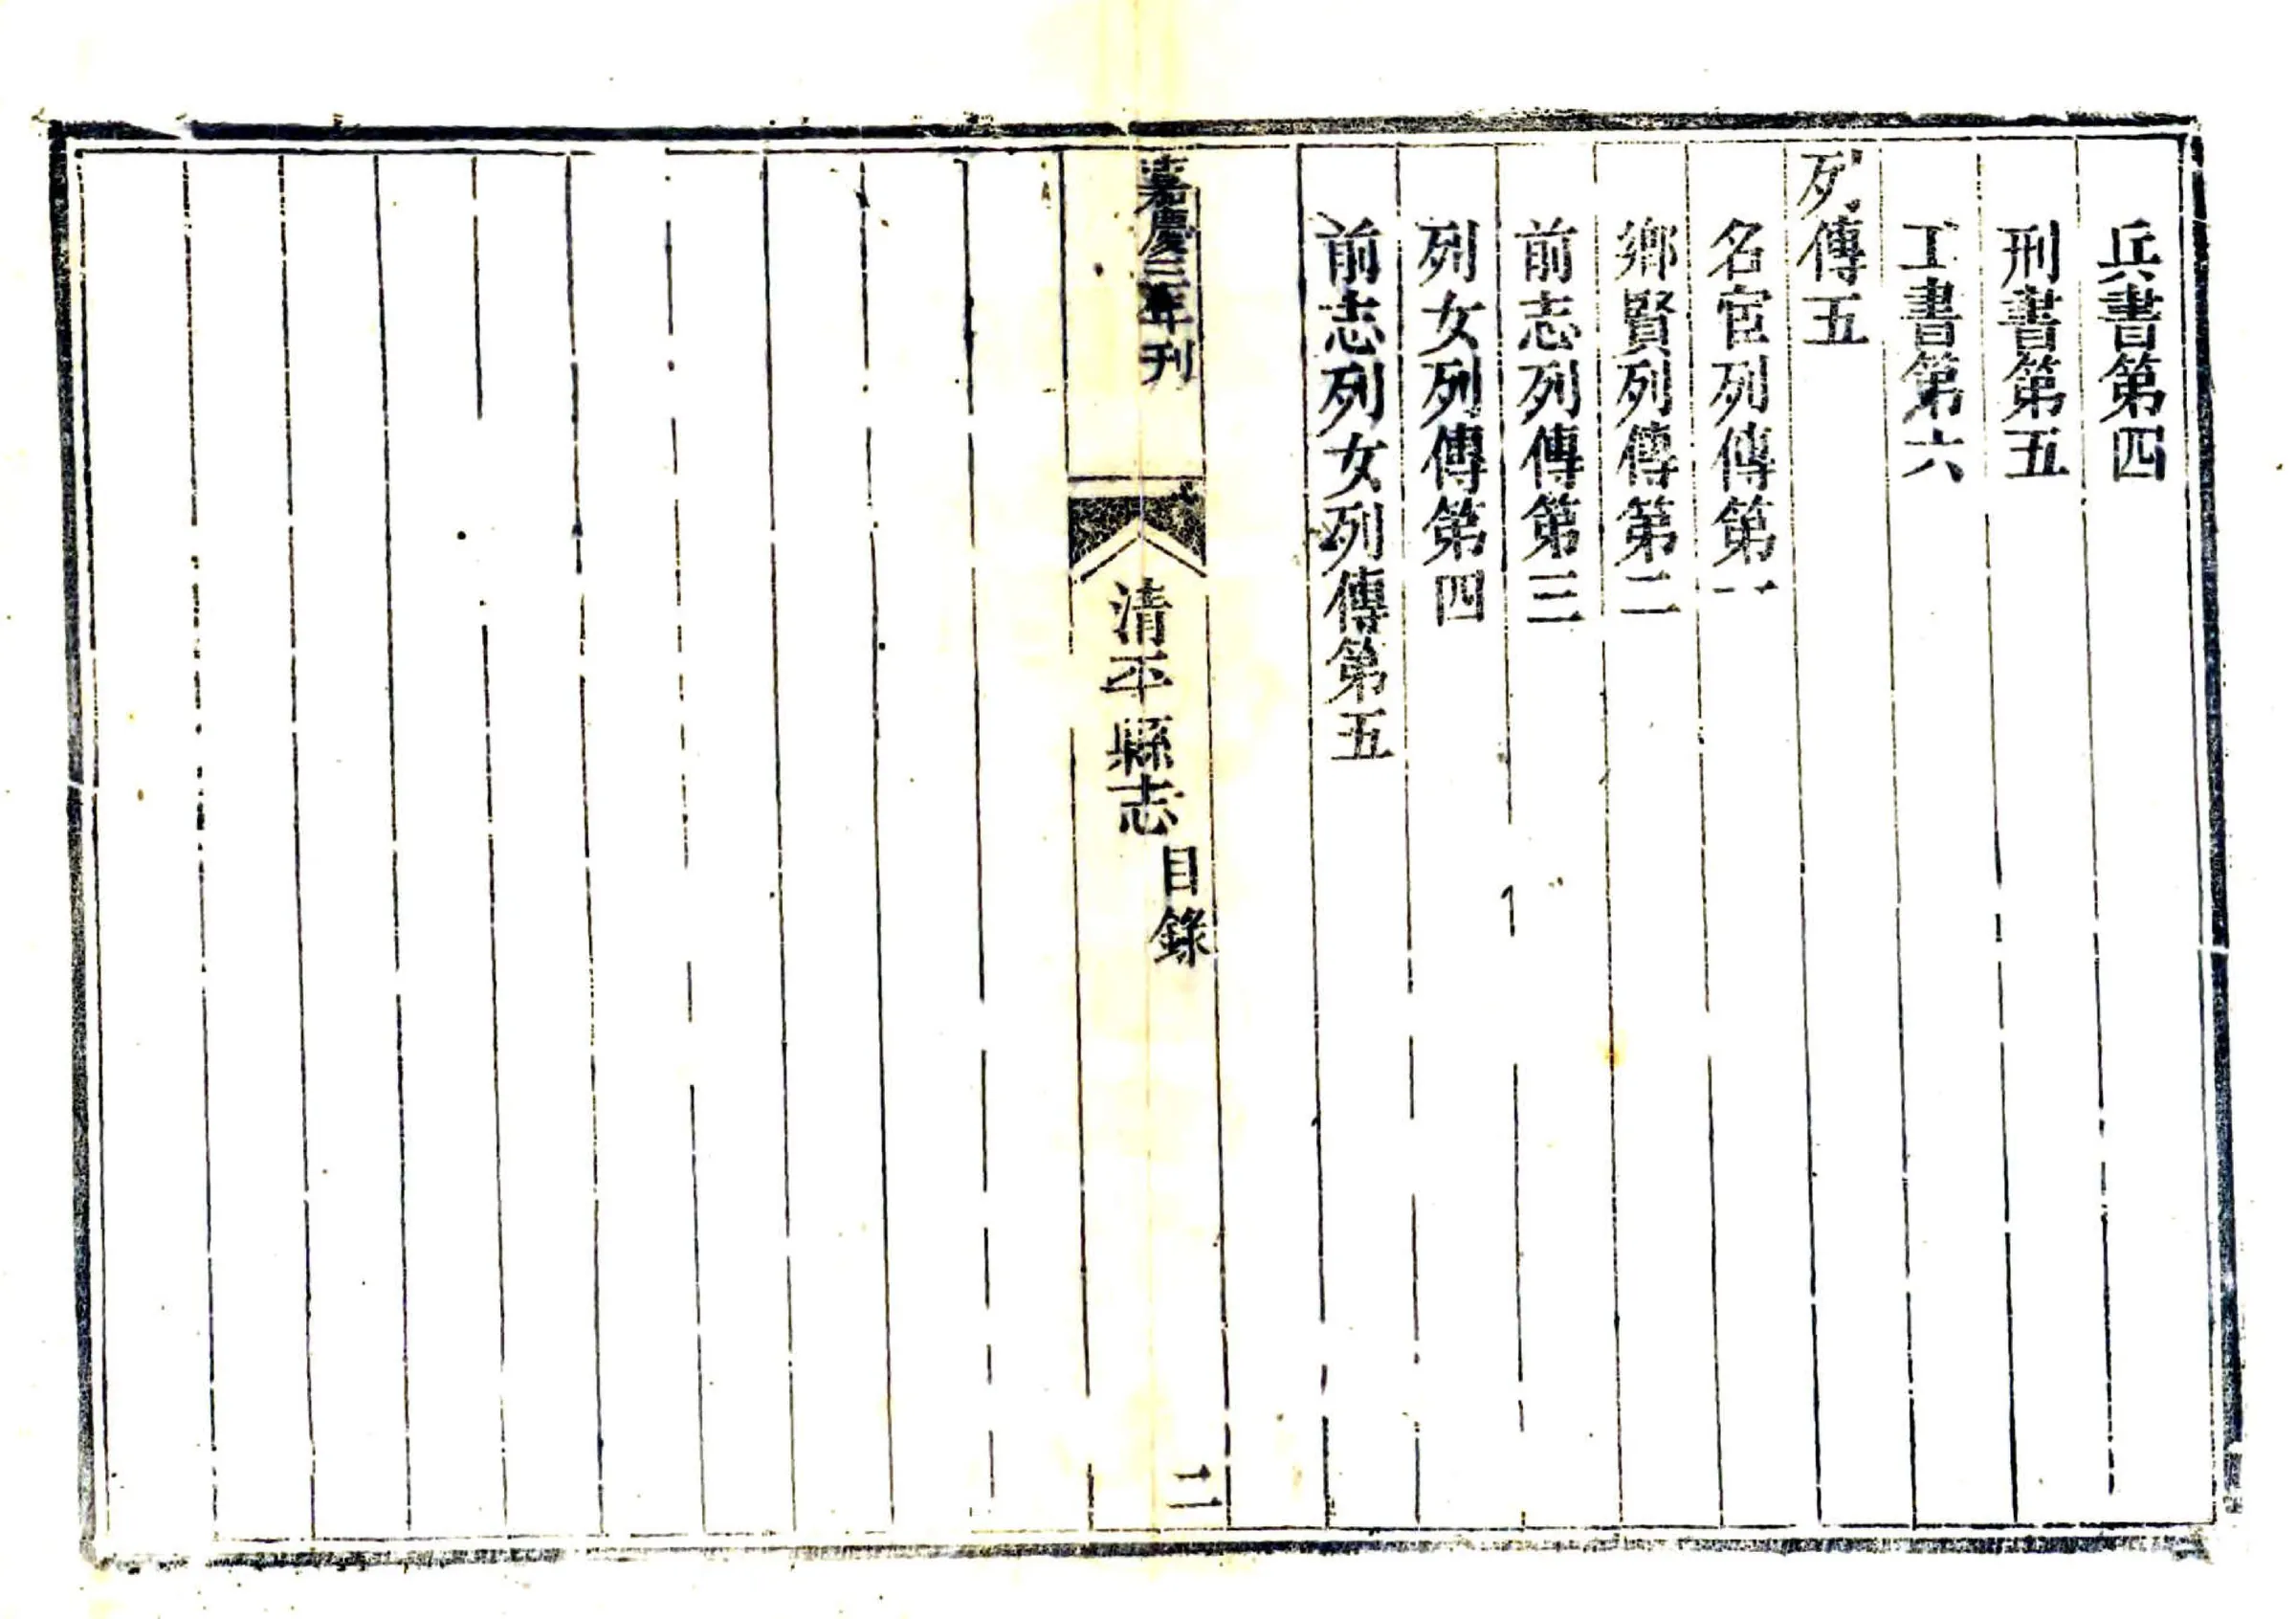 兵書第四
刑書第五
工書第六
列傳五
名宦列傳第一
鄉賢列傳第二
前志列傳第三
列女列傳第四
前志列女列傳第五
嘉慶三年刊
清平縣志
目錄
二